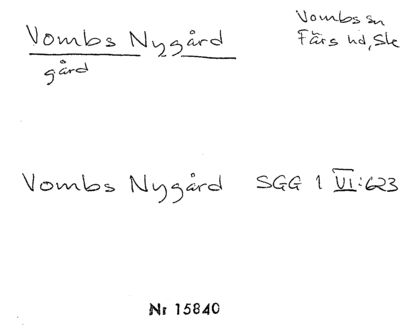 Vombs Nygård
gård
Vombs sn
Färs hd, Sk
Vombs Nygård SGG 1 VI:623
Nr 15840